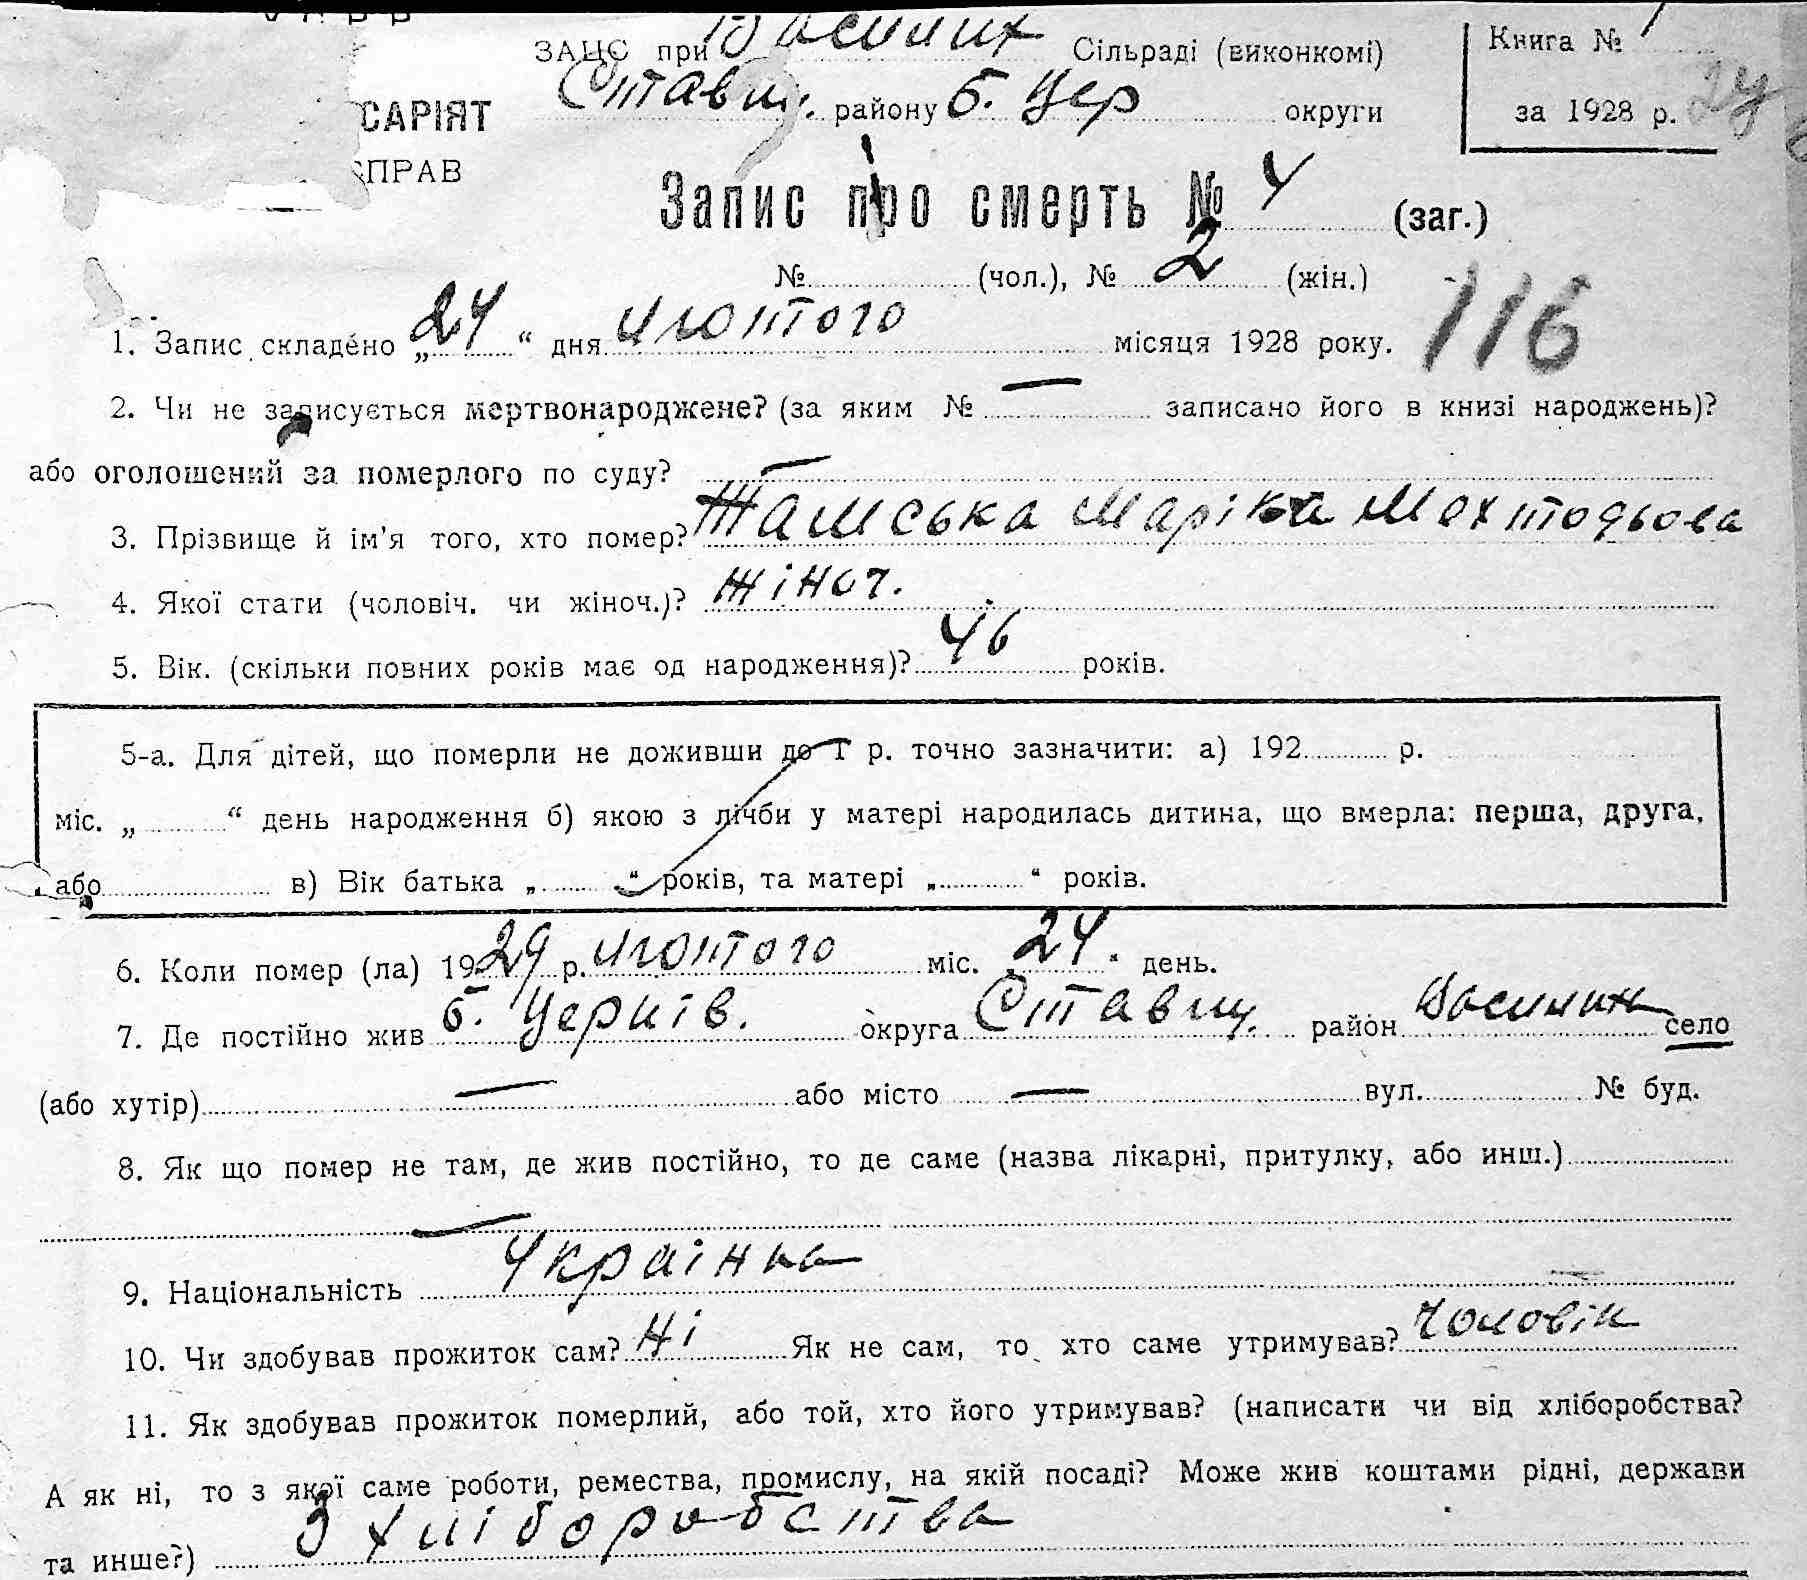 У С Р Р
ЗАЦС при Василих Сільраді (виконкомі)
Книга № 1
САРІЯТ
Ставищ. району Б. Цер округи
за 1928 р. 24
СПРАВ
Запис про смерть № 4 (заг.)
№ (чол.), № 2 (жін.)
116
1. Запис складено „ 24 “ дня лютого місяця 1928 року.
2. Чи не записується мертвонароджене? (за яким № — записано його в книзі народжень)?
або оголошений за померлого по суду? —
3. Прізвище й ім'я того, хто помер? Марі
4. Якої стати (чоловіч. чи жіноч.)? жіноч.
5. Вік. (скільки повних років має од народження)? 46 років.
5-а. Для дітей, що померли не доживши до 1 р. точно зазначити: а) 192 р.
міс. „ “ день народження б) якою з лічби у матері народилась дитина, що вмерла: перша, друга,
або в) Вік батька „ “ років, та матері „ “ років.
6. Коли помер (ла) 1929 р. лютого міс. 24 “ день.
7. Де постійно жив Б. Церків. округа Ставищ. район село
(або хутір) — або місто — вул. № буд.
8. Як що помер не там, де жив постійно, то де саме (назва лікарні, притулку, або инш.)
—
9. Національність Українка
10. Чи здобував прожиток сам? Ні Як не сам, то хто саме утримував? чоловік
11. Як здобував прожиток померлий, або той, хто його утримував? (написати чи від хліборобства?
А як ні, то з якої саме роботи, ремества, промислу, на якій посаді? Може жив коштами рідні, держави
та инше?) З хліборобства